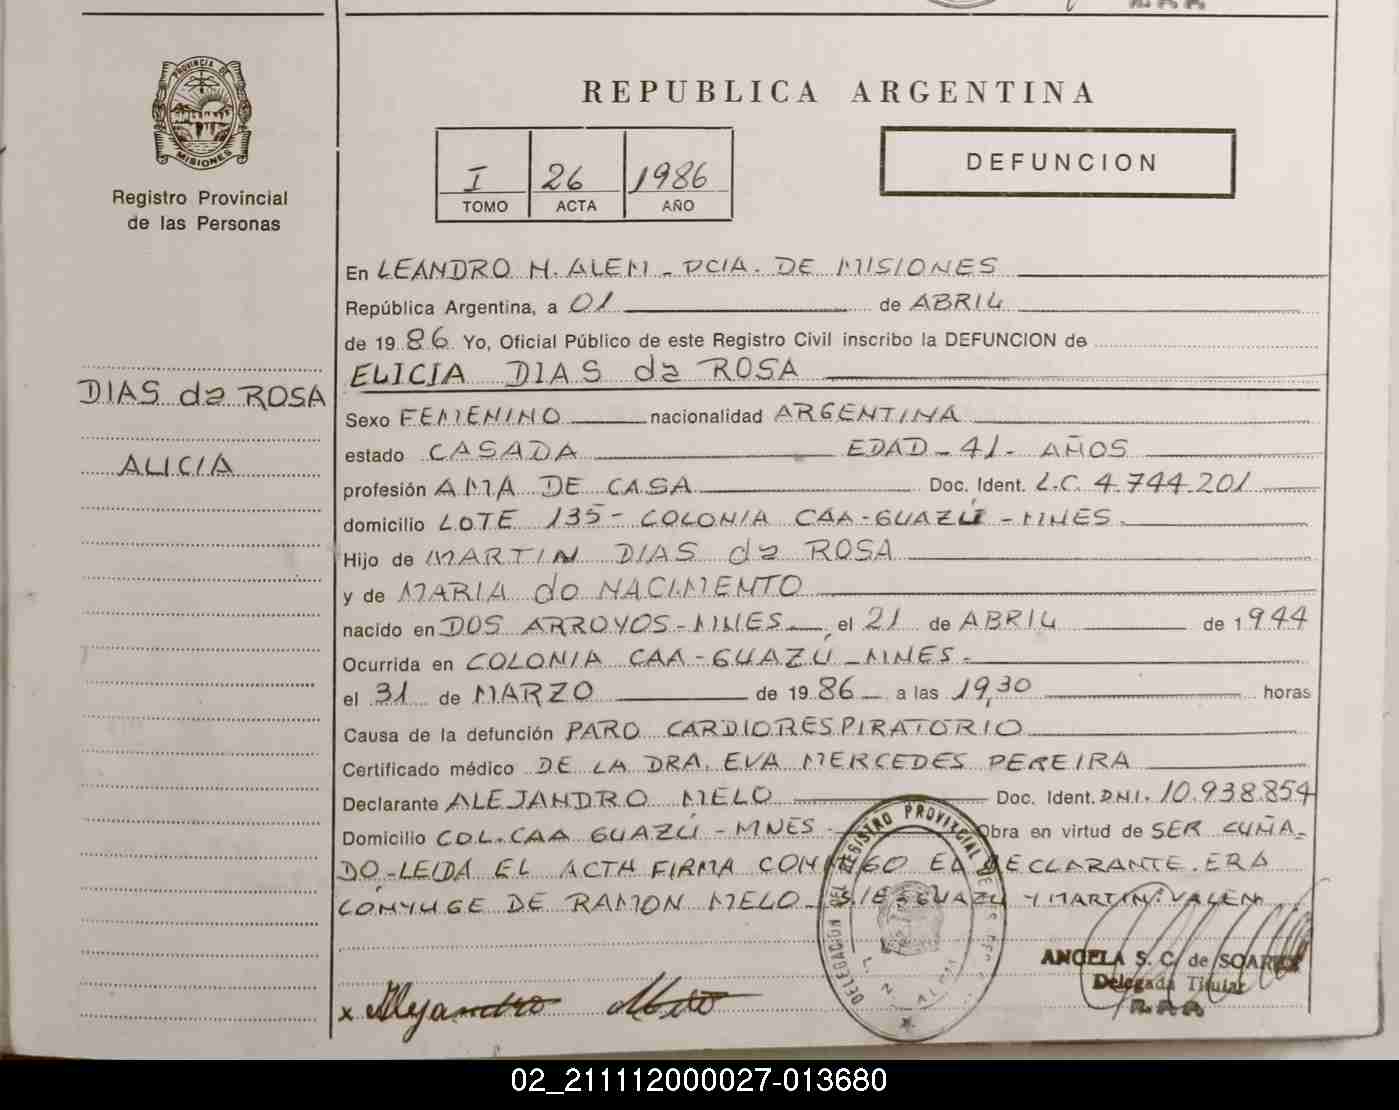 PROVINCIA DE
MISIONES
Registro Provincial
de las Personas
DIAS da ROSA
ALICIA
REPUBLICA ARGENTINA
I 26 1986
TOMO ACTA AÑO
DEFUNCION
En LEANDRO N. ALEM - PCIA. DE MISIONES
República Argentina, a 01 de ABRIL
de 1986 Yo, Oficial Público de este Registro Civil inscribo la DEFUNCION de
ELICIA DIAS da ROSA
Sexo FEMENINO nacionalidad ARGENTINA
estado CASADA EDAD - 41 - AÑOS
profesión AMA DE CASA Doc. Ident. L.C. 4.744.201
domicilio LOTE 135 - COLONIA CAA-GUAZÚ - MNES.
Hijo de MARTIN DIAS da ROSA
y de MARIA do NACIMENTO
nacido en DOS ARROYOS - MNES , el 21 de ABRIL de 1944
Ocurrida en COLONIA CAA-GUAZU - MNES -
el 31 de MARZO de 1986 a las 19,30 horas
Causa de la defunción PARO CARDIORESPIRATORIO
Certificado médico DE LA DRA. EVA MERCEDES PEREIRA
Declarante ALEJANDRO MELO Doc. Ident. D.N.I. 10.938.854
Domicilio COL. CAA GUAZÚ - MNES - Obra en virtud de SER CUÑA-
DO - LEIDA EL ACTA FIRMA CONMIGO EL DECLARANTE. ERA
CONYUGE DE RAMON MELO - S/E: GUAZU Y MARTIN: VALEN
DELEGACION DEL REGISTRO PROVINCIAL DE LAS PERSONAS
L. N. ALEM
ANGELA S. C. de SOAREZ
Delegada Titular
R.P.P.
x Alejandro Melo
02_211112000027-013680